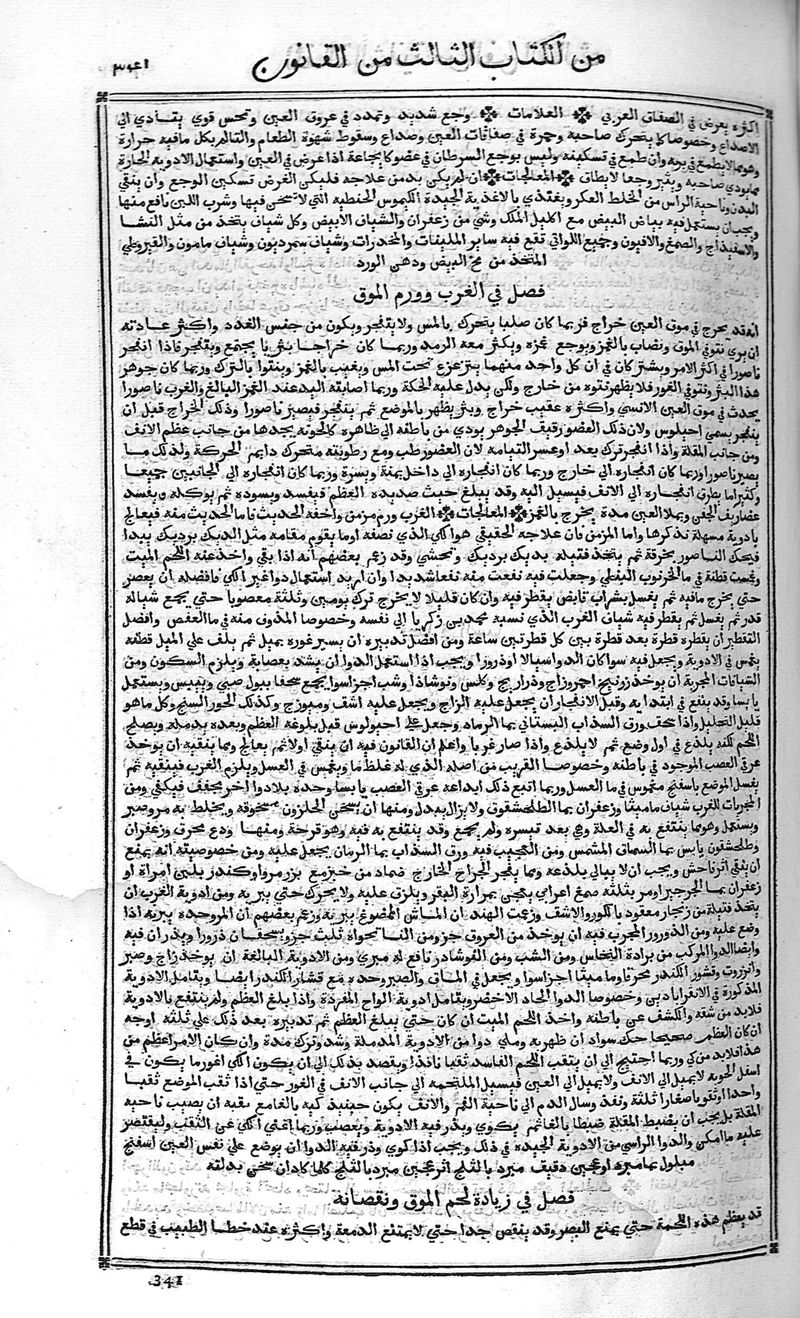 من الكتاب الثالث من القانون
٣٤١
اكثره يعرض في الصفاق العربي ❊ العلامات ❊ وجع شديد وتمدد في عروق العين ونخس قوي يتادي الي
الاصداغ وخصوصا كلما يتحرك صاحبه وحمرة في صفاقات العين وصداع وسقوط شهوة الطعام والتالم بكل ما فيه حرارة
وهو مما لا يطمع في برءه وان طمع في تسكينه وليس يوجع السرطان في عضو كايجاعه اذا عرض في العين واستعمال الادوية الحارة
مما يوذي صاحبه ويثير وجعا لا يطاق ❊ المعالجات ❊ ان لم يكن بد من علاجه فليكن الغرض تسكين الوجع وان ينقي
البدن وناحية الراس من الخلط العكر ويغتذي بالاغذية الجيدة الكيموس الحنطية التي لا تسخن فيها وشرب اللبن نافع منها
ويجب ان يستعمل فيه بياض البيض مع اكليل الملك وشي من زعفران والشياف الابيض وكل شياف يتخذ من مثل النشا
والاسفيذاج والصمغ والافيون وجميع اللواتي تقع فيه ساير الملينات والمخدرات وشياف سمرديون وشياف مامون والقيروطي
المتخذ من مح البيض ودهن الورد
فصل في الغرب وورم الموق
انه قد يخرج في موق العين خراج فربما كان صلبا يتحرك بالمس ولا ينفجر ويكون من جنس الغدد واكثر عادته
ان يري نتو في الموق ويصاب بالغمز ويوجع غمزه ويكثر معه الرمد وربما كان خراجا بثريا يجتمع وينفجر فاذا انفجر
ناصورا في اكثر الامر ويشتركان في ان كل واحد منهما يتزعزع تحت المس ويغيب بالغمز وينتوا بالترك وربما كان جوهر
هذا البثر ونتو في الغور فلا يظهر نتوه من خارج ولكن يدل عليه الحكة وربما اصابته اليد عند الغمز البالغ والغرب ناصورا
يحدث في موق العين الانسي واكثره عقيب خراج وبثر يظهر بالموضع ثم ينفجر فيصير ناصورا وذلك الخراج قبل ان
ينفجر يسمي اخيلوس ولان ذلك العضو رقيق الجوهر يودي من باطنه الي ظاهره كالجوبة يجدها من جانب عظم الانف
ومن جانب المقلة واذا انفجر ترك بعد او عسر التيامه لان العضو رطب ومع رطوبته متحرك دايم الحركة ولذلك ما
يصير ناصورا وربما كان انفجاره الي خارج وربما كان انفجاره الي داخل يمنة ويسرة وربما كان انفجاره الي الجانبين جميعا
وكثيرا ما يطرق انفجاره الي الانف فيسيل اليه وقد يبلغ خبث صديده العظم فيفسد ويسوده ثم ياكله ويفسد
غضاريف الجفن ويملا العين مدة يخرج بالغمز ❊ المعالجات ❊ الغرب ورم مزمن واخفه الحديث فاما الحديث منه فيعالج
بادوية مسهلة نذكرها واما المزمن فان علاجه الحقيقي هو الكي الذي نصفه او ما يقوم مقامه مثل الديك برديك يبدا
فيحك الناصور بخرقة ثم يتخذ فتيلة بديك برديك وتحشي وقد زعم بعضهم انه اذا نقي واخذ عنه اللحم الميت
وغمست قطنة في ما الخرنوب النبطي وجعلت فيه نفعت منه نفعا شديدا وان اريد استعمال دوا غير الكي فافضله ان يعصر
حتي يخرج ما فيه ثم يغسل بشراب قابض يقطر فيه وان كان قليلا لا يخرج ترك يومين وثلثة معصوبا حتي يجمع شيا له
قدر ثم يغسل ثم يقطر فيه شياف الغرب الذي نسبه محمد بن زكريا الي نفسه وخصوصا المدوف منه في ما العفص وافضل
التقطير ان يقطره قطرة بعد قطرة بين كل قطرتين ساعة ومن افضل تدبيره ان يسبر غوره بميل ثم يلف علي الميل قطنة
يغمس في الادوية ويجعل فيه سوا كان الدوا سيالا او ذرورا ويجب اذا استعمل الدوا ان يشد بعصابة ويلزم السكون ومن
الشيافات المجربة ان يوخذ زرنيخ احمر وزاج وذراريح وكلس ونوشادر وشب اجزا سوا يجمع سحقا ببول صبي وييبس ويستعمل
يابسا وقد ينفع في ابتدايه وقبل الانفجار ان يجعل عليه الزاج ويجعل عليه اشق وميويزج وكذلك الجوز السنج وكل ما هو
قليل التحليل واذا سحق ورق السذاب البستاني بما الرماد وجعل علي اخيلوس قبل بلوغه العظم وبعده يدمله ويصلح
اللحم لكنه يلذع في اول وضع ثم لا يلذع واذا صار غربا واعلم ان القانون فيه ان ينقي اولا ثم يعالج ومما ينقيه ان يوخذ
غرقي القصب الموجود في باطنه وخصوصا القريب من اصله الذي له غلظ ما ويغمس في العسل ويلزم الغرب فينقيه ثم
يغسل الموضع باسفنج مغموس في ما العسل وربما اتبع ذلك ايداعه غرقي القصب يابسا وحده بلا دوا اخر يجفف فيكفي ومن
المجربات للغرب شياف ماميثا وزعفران بما الطلحشقوق ولا يزال يبدل ومنها ان يسحق الحلزون بخرقة ويخلط به مر وصبر
ويستعمل وهو مما ينتفع به في العلة وهي بعد تيسره ولم يجمع وقد ينتفع به فيه وهو قرحة ومنها ودع محرق وزعفران
وطلحشقون يابس بما السماق المشمس ومن العجيب فيه ورق السذاب بما الرمان يجعل عليه ومن خصوصيته انه يمنع
ان يبقي اثر فاحش ويجب ان لا يبالي بلذعه ومما يفجر الخراج الخارج ضماد من خبز مع بزر مرو او كندر بلبن امراة او
زعفران بما الجرجير او مر بثلثه صمغ اعرابي يعجن بمرارة البقر ويلزق عليه ولا يحرك حتي يبريه ومن ادوية الغرب ان
يتخذ فتيلة من زنجار معقود بالكور والاشق وزعمت الهند ان الماش الممضوغ يبريه وزعم بعضهم ان المر وحده يبريه اذا
وضع عليه ومن الذرور المجرب فيه ان يوخذ من العروق جزو ومن النانخواة ثلث جزو يسحقان ذرورا ويذران فيه
وايضا الدوا المركب من برادة النحاس ومن الشب ومن النوشادر نافع له مبري ومن الادوية البالغة ان يوخذ زاج وصبر
وانزروت وقشور الكندر محرقا وماميثا اجزا سوا ويجعل في الماق والصبر وحده مع قشار الكندر ايضا ويتامل الادوية
المذكورة في الاقراباذين وخصوصا الدوا الحاد الاخضر ويتامل ادوية الواح المفردة واذا بلغ العظم ولم ينتفع بالادوية
فلا بد من شقه والكشف عن باطنه واخذ اللحم الميت ان كان حتي يبلغ العظم ثم تدبيره بعد ذلك علي ثلثة اوجه
ان كان العظم صحيحا حك سواد ان ظهر به وملي دوا من الادوية المدملة وشد وترك مدة وان كان الامر اعظم من
هذا فلا بد من كي وربما احتيج الي ان يثقب اللحم الفاسد ثقبا نافذا ويقصد بذلك الي ان يكون الكي اغور ما يكون في
اسفل الجوبة لا يميل الي الانف ولا يميل الي العين فيسيل الملتحمة الي جانب الانف في الغور حتي اذا ثقب الموضع ثقبا
واحدا او ثقوبا صغارا ثلثة ونفذ وسال الدم الي ناحية الفم والانف يكون حينيذ كيه بالغا مع بقيه ان يصيب ناحية
المقلة بل يجب ان يضبط المقلة ضبطا بالغا ثم يكوي ويذر فيه الادوية ويعصب وربما اغني الكي عن الثقب وليقتصر
عليه ما امكن والدوا الراسي من الادوية الجيدة في ذلك ويجب اذا كوي وذر فيه الدوا ان يوضع علي نفس العين اسفنج
مبلول بما مبرد او عجين دقيق مبرد بالثلج اثر عجين مبرد بالثلج كلما كاد ان سخن بدلته
فصل في زيادة لحم الموق ونقصانه
قد يعظم هذه اللحمة حتي يمنع البصر وقد ينقص جدا حتي لا يمتنع الدمعة واكثره عند خطا الطبيب في قطع
341